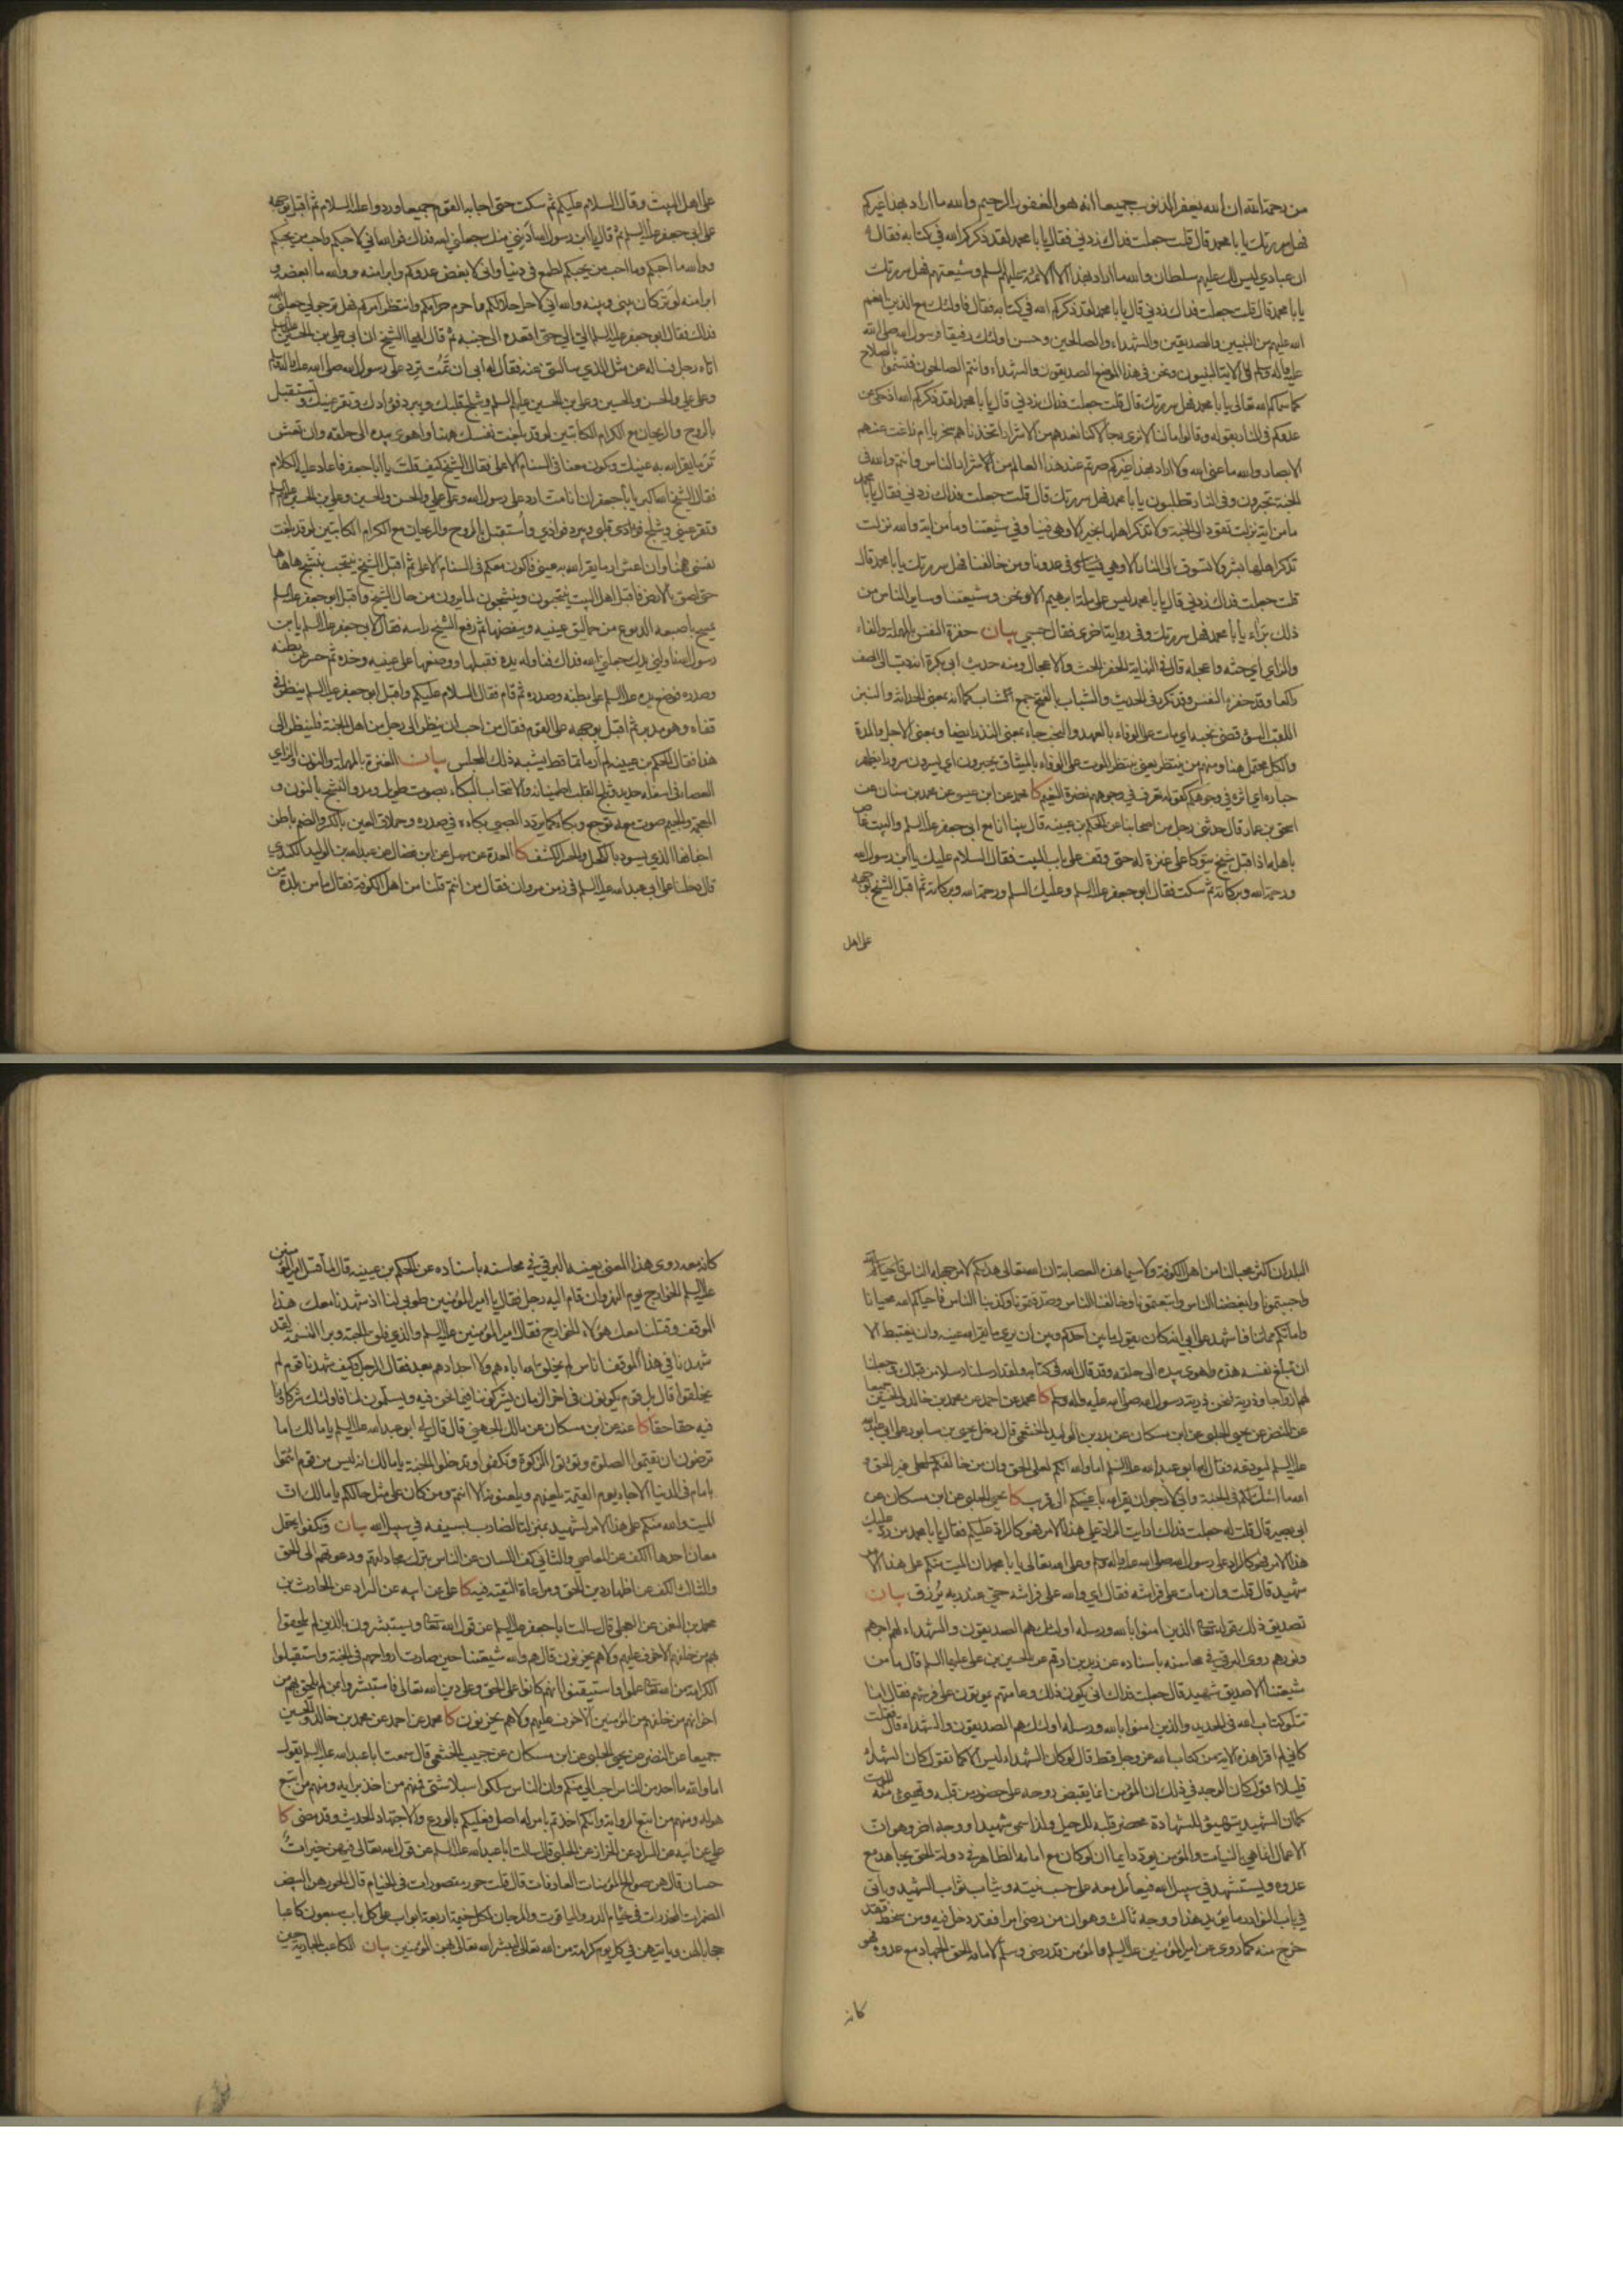 من رحمة الله ان الله يغفر الذنوب جميعا انه هو الغفور الرحيم والله ما اراد بهذا غيركم
فهل سررتك يا با محمد قال قلت جعلت فداك زدني فقال يا با محمد لقد ذكركم الله في كتابه فقال
ان عبادي ليس لك عليهم سلطان والله ما اراد بهذا الا الائمة عليهم السلم وشيعتهم فهل سررتك
يا با محمد قال قلت جعلت فداك زدني قال يا با محمد لقد ذكركم الله في كتابه فقال فاولئك مع الذين انعم
الله عليهم من النبيين والصديقين والشهداء والصالحين وحسن اولئك رفيقا فرسول الله صلى الله
عليه وآله وسلم في الاية النبيون ونحن في هذا الموضع الصديقون والشهداء وانتم الصالحون فتسموا بالصلاح
كما سماكم الله تعالى يا با محمد فهل سررتك قال قلت جعلت فداك زدني قال يا با محمد لقد ذكركم الله اذ حكى عن
عدوكم في النار بقوله وقالوا ما لنا لا نرى رجالا كنا نعدهم من الاشرار اتخذناهم سخريا ام زاغت عنهم
الابصار والله ما عنى الله ولا اراد بهذا غيركم صرتم عند هذا العالم من الاشرار الناس وانتم والله في
الجنة تحبرون وفي النار تطلبون يا با محمد فهل سررتك قال قلت جعلت فداك زدني فقال يا با محمد
ما من اية نزلت تقود الى الجنة ولا تذكر اهلها بخير الا وهي فينا وفي شيعتنا وما من اية والله نزلت
تذكر اهلها بشر ولا تسوق الى النار الا وهي في عدونا ومن خالفنا فهل سررتك يا با محمد قال
قلت جعلت فداك زدني قال يا با محمد ليس على ملة ابرهيم الا نحن وشيعتنا وساير الناس من
ذلك براء يا با محمد فهل سررتك وفي رواية اخرى فقال حسبي بيان حفزه النفس بالمهملة والفاء
والزاي اي حثه واعجله قال في النهاية الحفز الحث والاعجال ومنه حديث ابي بكرة انه دب الى الصف
راكعا وقد حفزه النفس وقد تكرر في الحديث والشباب بالفتح جمع الشاب كما انه بمعنى الحداثة والنبز
اللقب السوء قضى نحبه اي مات على الوفاء بالعهد والنحب جاء بمعنى النذر ايضا وبمعنى الاجل والمدة
والكل محتمل هنا ومنهم من ينتظر يعني ينتظر الموت على الوفاء بالميثاق يحبرون اي يسرون سرورا يظهر
حباره اي اثره في وجوهكم كقوله تعرف في وجوههم نضرة النعيم كا محمد عن ابن عيسى عن محمد بن سنان عن
اسحق بن عمار قال حدثني رجل من اصحابنا عن الحكم بن عيينه قال بينا انا مع ابي جعفر عليه السلم والبيت غاص
باهله اذ اقبل شيخ يتوكا على عنزة له حتى وقف على باب البيت فقال السلام عليك يا ابن رسول الله
ورحمة الله وبركاته ثم سكت فقال ابو جعفر عليه السلم وعليك السلم ورحمة الله وبركاته ثم اقبل الشيخ بوجهه
على اهل
على اهل البيت وقال السلام عليكم ثم سكت حتى اجابه القوم جميعا وردوا عليه السلام ثم اقبل بوجهه
على ابي جعفر عليه السلم ثم قال يا ابن رسول الله ادنني منك جعلني الله فداك فوالله اني لاحبكم واحب من يحبكم
ووالله ما احبكم وما احب من يحبكم لطمع في دنيا واني لابغض عدوكم وابرا منه ووالله ما ابغضه و
ابرا منه لوتر كان بيني وبينه والله اني لاحل حلالكم واحرم حرامكم وانتظر امركم فهل ترجو لي جعلني الله
فداك فقال ابو جعفر عليه السلم الي الي حتى اقعده الى جنبه ثم قال ايها الشيخ ان ابي علي بن الحسين عليه السلم
اتاه رجل فساله عن مثل الذي سالتني عنه فقال له ابي ان تمت ترد على رسول الله صلى الله عليه وآله وسلم
وعلى علي والحسن والحسين وعلى بن الحسين عليهم السلم ويثلج قلبك ويبرد فؤادك وتقر عينك وتستقبل
بالروح والريحان مع الكرام الكاتبين لو قد بلغت نفسك ههنا واهوى بيده الى حلقه وان تعش
تر ما يقر الله به عينك وتكون معنا في السنام الاعلى فقال الشيخ كيف قلت يا ابا جعفر فاعاد عليه الكلام
فقال الشيخ الله اكبر يا با جعفر ان انا مت ارد على رسول الله وعلى علي والحسن والحسين وعلي بن الحسين عليهم السلم
وتقر عيني ويثلج قلبي ويبرد فوادي واستقبل بالروح والريحان مع الكرام الكاتبين لو قد بلغت
نفسي ههنا وان اعش ارى ما يقر الله به عيني فاكون معكم في السنام الاعلى ثم اقبل الشيخ ينتحب ينشج هاها
حتى لصق بالارض فاقبل اهل البيت ينتحبون وينشجون لما يرون من حال الشيخ واقبل ابو جعفر عليه السلم
يمسح باصبعه الدموع من حماليق عينيه وينفضها ثم رفع الشيخ راسه فقال لابي جعفر عليه السلم يا بن
رسول الله ناولني يدك جعلني الله فداك فناوله يده فقبلها ووضعها على عينيه وخده ثم حسر عن بطنه
وصدره فوضع يده عليه السلم على بطنه وصدره ثم قام فقال السلام عليكم واقبل ابو جعفر عليه السلم ينظر في
قفاه وهو مدبر ثم اقبل بوجهه على القوم فقال من احب ان ينظر الى رجل من اهل الجنة فلينظر الى
هذا فقال الحكم بن عيينه لم ار ماتما قط يشبه ذلك المجلس بيان العنزة بالمهملة والنون والزاي
العصا في اسفله حديد وثلج القلب اطمينانه والانتحاب البكاء بصوت طويل ومد والنشج بالنون و
المعجمة والجيم صوت معه توجع وبكاء كما يردد الصبي بكاءه في صدره وحملاق العين بالكسر والضم باطن
اجفانها الذي يسود بالكحل والحسر الكشف كا العدة عن سهل عن ابن فضال عن عبدالله بن الوليد الكندي
قال دخلنا على ابي عبدالله عليه السلم في زمن مروان فقال من انتم قلنا من اهل الكوفة فقال ما من بلدة من
البلدان اكثر محبا لنا من اهل الكوفة ولا سيما هذه العصابة ان الله تعالى هداكم لامر جهله الناس
واحببتمونا وابغضنا الناس واتبعتمونا وخالفنا الناس وصدقتمونا وكذبنا الناس فاحياكم الله محيانا
واماتكم مماتنا فاشهد على ابي انه كان يقول ما بين احدكم وبين ان يرى ما يقر الله عينه وان يغتبط الا
ان تبلغ نفسه هذه واهوى بيده الى حلقه وقد قال الله في كتابه ولقد ارسلنا رسلا من قبلك وجعلنا
لهم ازواجا وذرية فنحن ذرية رسول الله صلى الله عليه واله وسلم كا محمد عن احمد عن محمد بن خالد والحسين جميعا
عن النضر عن يحيى الحلبي عن ابن مسكان عن بدر بن الوليد الخثعمي قال دخل يحيى بن سابور على ابي عبدالله
عليه السلم ليودعه فقال له ابو عبدالله عليه السلم اما والله انكم لعلى الحق وان من خالفكم لعلى غير الحق و
الله ما اشك لكم في الجنة واني لارجو ان يقر الله باعينكم الى قريب كا يحيى الحلبي عن ابن مسكان عن
ابي بصير قال قلت له جعلت فداك ارايت الراد علي هذا الامر فهو كالراد عليكم فقال يا با محمد من رد عليك
هذا الامر فهو كالراد على رسول الله صلى الله عليه واله وسلم وعلى الله تعالى يا با محمد ان الميت منكم على هذا الامر
شهيد قال قلت وان مات على فراشه فقال اي والله على فراشه حي عند ربه يرزق بيان
تصديق ذلك قوله تعالى الذين امنوا بالله ورسله اولئك هم الصديقون والشهداء لهم اجرهم
ونورهم روى البرقي في محاسنه باسناده عن زيد بن ارقم عن الحسين بن علي عليهما السلم قال ما من
شيعتنا الا صديق شهيد قال جعلت فداك انى يكون ذلك وعامتهم يموتون على فرشهم فقال اما
تتلو كتاب الله في الحديد والذين امنوا بالله ورسله اولئك هم الصديقون والشهداء قال فقلت
كاني لم اقرا هذه الاية من كتاب الله عز وجل قط قال لو كان الشهداء ليس الا كما تقول كان الشهداء
قليلا اقول كان الوجه في ذلك ان المؤمن انما يقبض روحه على حضور من قلبه وتهيئ منه للموت
كما ان الشهيد يتهيئ للشهادة محضر قلبه للرحيل ولذا سمي شهيدا ووجه اخر وهو ان
الاعمال انما هي بالنيات والمؤمن يود دايما ان لو كان مع امامه الظاهر في دولة الحق يجاهد مع
عدوه ويستشهد في سبيل الله فيعامل معه على حسب نيته ويثاب ثواب الشهيد وياتي
في باب النوادر ما يؤيد هذا ووجه ثالث وهو ان من رضي امرا فقد دخل فيه ومن سخطه فقد
خرج منه كما روى عن امير المؤمنين عليه السلم والمؤمن قد رضي وسلم لامامه الحق الجهاد مع عدوه فهو
كانه
كانه معه روى هذا المعنى بعينه البرقي في محاسنه باسناده عن الحكم بن عيينه قال لما قتل امير المؤمنين
عليه السلم الخوارج يوم النهروان قام اليه رجل فقال يا امير المؤمنين طوبى لنا اذ شهدنا معك هذا
الموقف وقتلنا معك هؤلاء الخوارج فقال امير المؤمنين عليه السلم والذي فلق الحبة وبرا النسمة لقد
شهدنا في هذا الموقف اناس لم يخلق الله اباءهم ولا اجدادهم بعد فقال الرجل وكيف شهدنا قوم لم
يخلقوا قال بل قوم يكونون في اخر الزمان يشركوننا فيما نحن فيه ويسلمون لنا فاولئك شركاؤنا
فيه حقا حقا كا عنه عن ابن مسكان عن مالك الجهني قال قال لي ابو عبدالله عليه السلم يا مالك اما
ترضون ان تقيموا الصلوة وتؤتوا الزكوة وتكفوا وتدخلوا الجنة يا مالك انه ليس من قوم ائتموا
بامام في الدنيا الا جاء يوم القيمة يلعنهم ويلعنونه الا انتم ومن كان على مثل حالكم يا مالك ان
الميت والله منكم على هذا الامر لشهيد بمنزلة الضارب بسيفه في سبيل الله بيان وتكفوا يحتمل
معان احدها الكف عن المعاصي والثاني كف اللسان عن الناس بترك مجادلتهم ودعوتهم الى الحق
والثالث الكف عن اظهار دين الحق ومراعاة التقية فيه كا علي عن ابيه عن السراد عن الحارث بن
محمد بن النعمن عن العجلي قال سالت ابا جعفر عليه السلم عن قول الله تعالى ويستبشرون بالذين لم يلحقوا
بهم من خلفهم الا خوف عليهم ولا هم يحزنون قال هم والله شيعتنا حين صارت ارواحهم في الجنة واستقبلوا
الكرامة من الله تعالى علموا واستيقنوا انهم كانوا على الحق وعلى دين الله تعالى فاستبشروا بمن لم يلحق بهم من
اخوانهم من خلفهم من المؤمنين الا خوف عليهم ولا هم يحزنون كا محمد عن احمد عن محمد بن خالد والحسين
جميعا عن النضر عن يحيى الحلبي عن ابن مسكان عن حبيب الخثعمي قال سمعت ابا عبدالله عليه السلم يقول
اما والله ما احد من الناس احب الي منكم وان الناس سلكوا سبلا شتى فمنهم من اخذ برايه ومنهم من اتبع
هواه ومنهم من اتبع الرواية وانكم اخذتم بامر له اصل فعليكم بالورع والاجتهاد الحديث وقد مضى كا
علي عن ابيه عن السراد عن الخزاز عن الحلبي قال سالت ابا عبدالله عليه السلم عن قول الله تعالى فيهن خيرات
حسان قال هن صوالح المؤمنات العارفات قال قلت حور مقصورات في الخيام قال الحور هن البيض
المضمرات المخدرات في خيام الدر والياقوت والمرجان لكل خيمة اربعة ابواب على كل باب سبعون كاعبا
حجابا لهن وياتيهن في كل يوم كرامة من الله تعالى ليبشر الله تعالى بهن المؤمنين بيان الكاعب الجارية حين